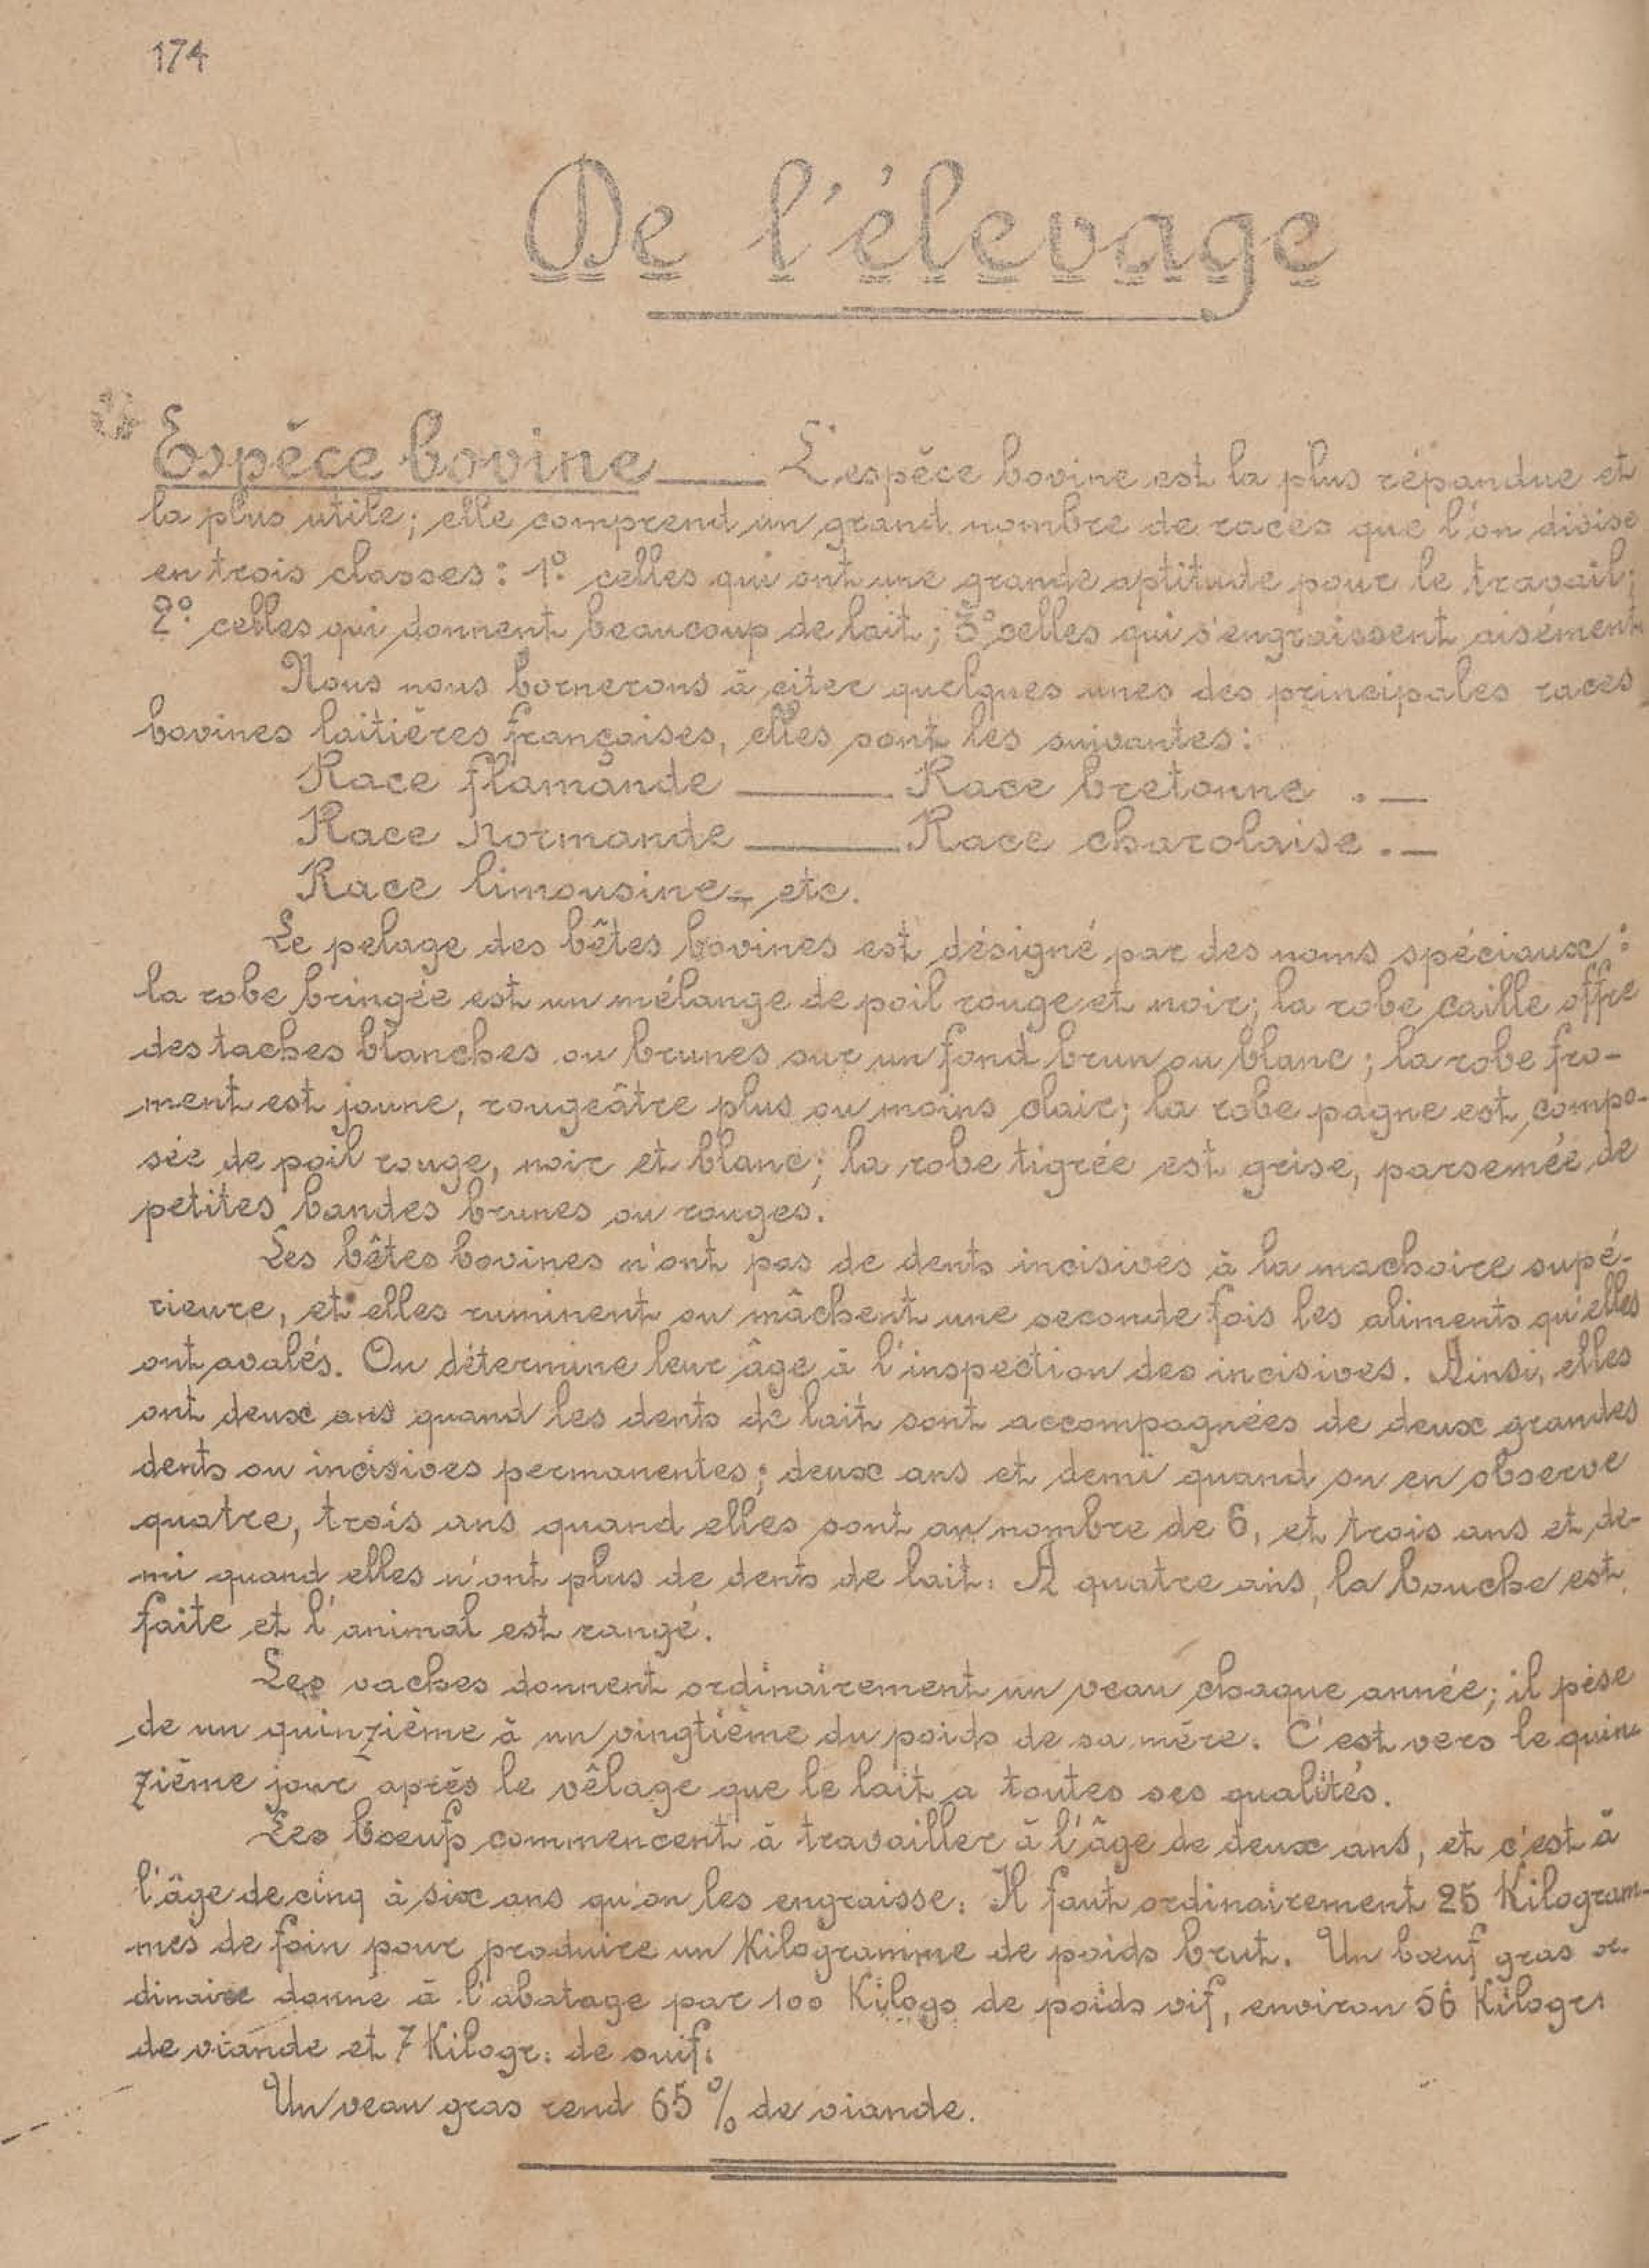 174
De l'élevage
Espèce bovine — L'espèce bovine est la plus répandue et
la plus utile; elle comprend un grand nombre de races que l'on divise
en trois classes : 1° celles qui ont une grande aptitude pour le travail;
2° celles qui donnent beaucoup de lait; 3° celles qui s'engraissent aisément
Nous nous bornerons à citer quelques unes des principales races
bovines laitières françaises, elles sont les suivantes :
Race flamande — Race bretonne . —
Race Normande — Race charolaise . —
Race limousine - etc.
Le pelage des bêtes bovines est désigné par des noms spéciaux :
la robe bringée est un mélange de poil rouge et noir; la robe caille offre
des taches blanches ou brunes sur un fond brun ou blanc; la robe fro-
ment est jaune, rougeâtre plus ou moins clair; la robe pagne est compo-
sée de poil rouge, noir et blanc; la robe tigrée est grise, parsemée de
petites bandes brunes ou rouges.
Les bêtes bovines n'ont pas de dents incisives à la machoire supé-
rieure, et elles ruminent ou mâchent une seconde fois les aliments qu'elles
ont avalés. On détermine leur âge à l'inspection des incisives. Ainsi, elles
ont deux ans quand les dents de lait sont accompagnées de deux grandes
dents ou incisives permanentes; deux ans et demi quand on en observe
quatre, trois ans quand elles sont au nombre de 6, et trois ans et de-
mi quand elles n'ont plus de dents de lait. A quatre ans, la bouche est
faite et l'animal est rangé.
Les vaches donnent ordinairement un veau chaque année; il pèse
de un quinzième à un vingtième du poids de sa mère. C'est vers le quin-
zième jour après le vêlage que le lait a toutes ses qualités.
Les bœufs commencent à travailler à l'âge de deux ans, et c'est à
l'âge de cinq à six ans qu'on les engraisse. Il faut ordinairement 25 Kilogram-
mes de foin pour produire un Kilogramme de poids brut. Un bœuf gras or-
dinaire donne à l'abatage par 100 Kilogs de poids vif, environ 56 Kilogrs
de viande et 7 Kilogr. de suif.
Un veau gras rend 65 % de viande.